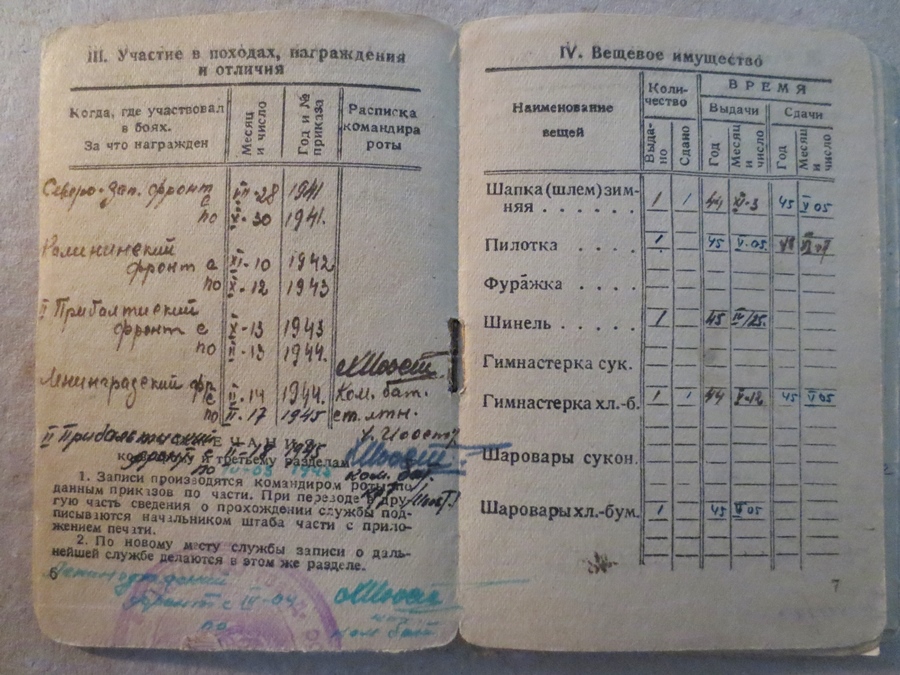 III. Участие в походах, награждения
и отличия
Когда, где участвовал
в боях.
За что награжден
Месяц
и число
Год и №
приказа
Расписка
командира
роты
Северо-зап. фронт
с 28 1941
по 30 1941.
Калининский
фронт с XI-10 1942
по 12 1943
II Прибалтиский
фронт с X-13 1943
по 13 1944.
Ленинградский фр
с 14 1944. Ком. бат.
по 17 1945 ст. лтн.
II Прибалтиский
фронт 18 1945
по 1945
к третьему разделам
Ком. бат.
1. Записи производятся командиром роты по
данным приказов по части. При переходе в дру-
гую часть сведения о прохождении службы под-
писываются начальником штаба части с прило-
жением печати.
2. По новому месту службы записи о даль-
нейшей службе делаются в этом же разделе.
6
Ленинградский
фронт с
по
Ком бат
IV. Вещевое имущество
Наименование
вещей
Коли-
чество
ВРЕМЯ
Выдачи
Сдачи
Выда-
но
Сдано
Год
Месяц
и
число
Год
Месяц
и
число
Шапка (шлем) зим-
няя . . . . . . 1 1 44 XI-3 45 V 05
Пилотка . . . . 1 45 V-05
Фуражка . . . .
Шинель . . . . . 1 45
Гимнастерка сук.
Гимнастерка хл.-б. 1 1 44 45 V 05
Шаровары сукон.
Шаровары хл.-бум. 1 45 V 05
7